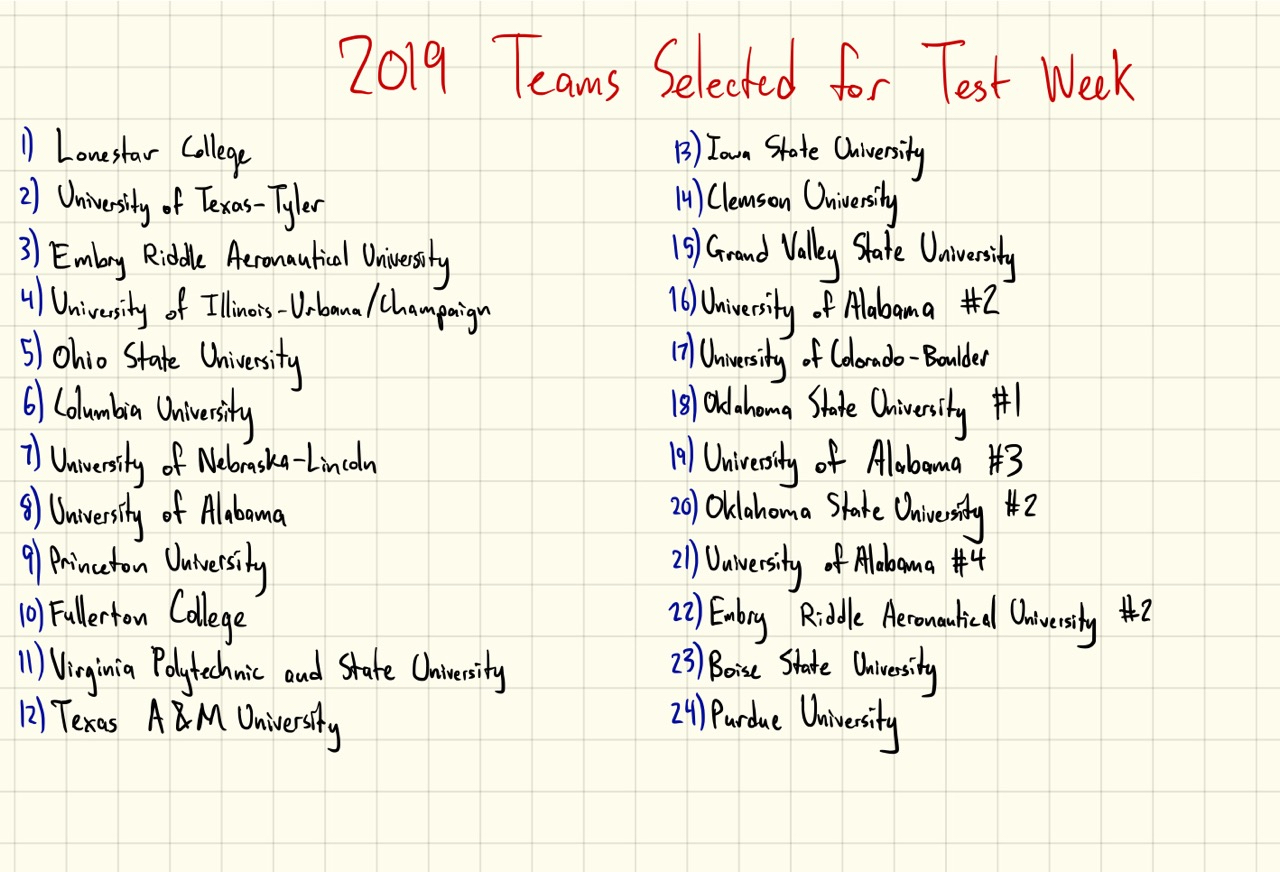 2019 Teams Selected for Test Week
1) Lonestar College
2) University of Texas-Tyler
3) Embry Riddle Aeronautical University
4) University of Illinois-Urbana/Champaign
5) Ohio State University
6) Columbia University
7) University of Nebraska-Lincoln
8) University of Alabama
9) Princeton University
10) Fullerton College
11) Virginia Polytechnic and State University
12) Texas A&M University
13) Iowa State University
14) Clemson University
15) Grand Valley State University
16) University of Alabama #2
17) University of Colorado-Boulder
18) Oklahoma State University #1
19) University of Alabama #3
20) Oklahoma State University #2
21) University of Alabama #4
22) Embry Riddle Aeronautical University #2
23) Boise State University
24) Purdue University